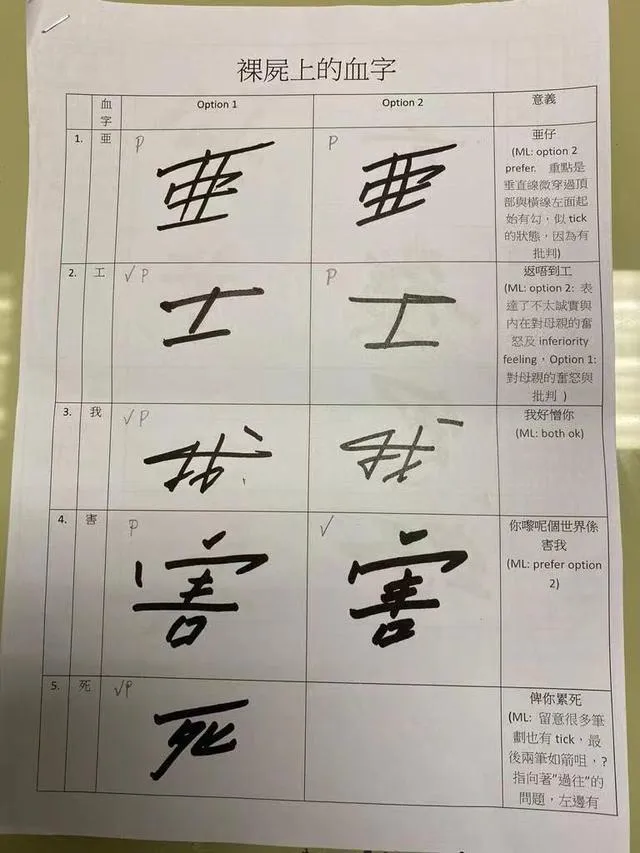 裸屍上的血字
血字 Option 1 Option 2 意義
1. 亜 P 亜 P 亜 亜仔
(ML: option 2
prefer. 重點是
垂直線微穿過頂
部與橫線左面起
始有勾，似 tick
的狀態，因為有
批判)
2. 工 √ P 工 P 工 返唔到工
(ML: option 2: 表
達了不太誠實與
內在對母親的奮
怒及 inferiority
feeling，Option 1:
對母親的奮怒與
批判 )
3. 我 √ P 我 我 我好憎你
(ML: both ok)
4. 害 P 害 √ 害 你嚟呢個世界係
害我
(ML: prefer option
2)
5. 死 √P 死 俾你累死
(ML: 留意很多筆
劃也有 tick，最
後兩筆如箭咀，?
指向著”過往”的
問題，左邊有